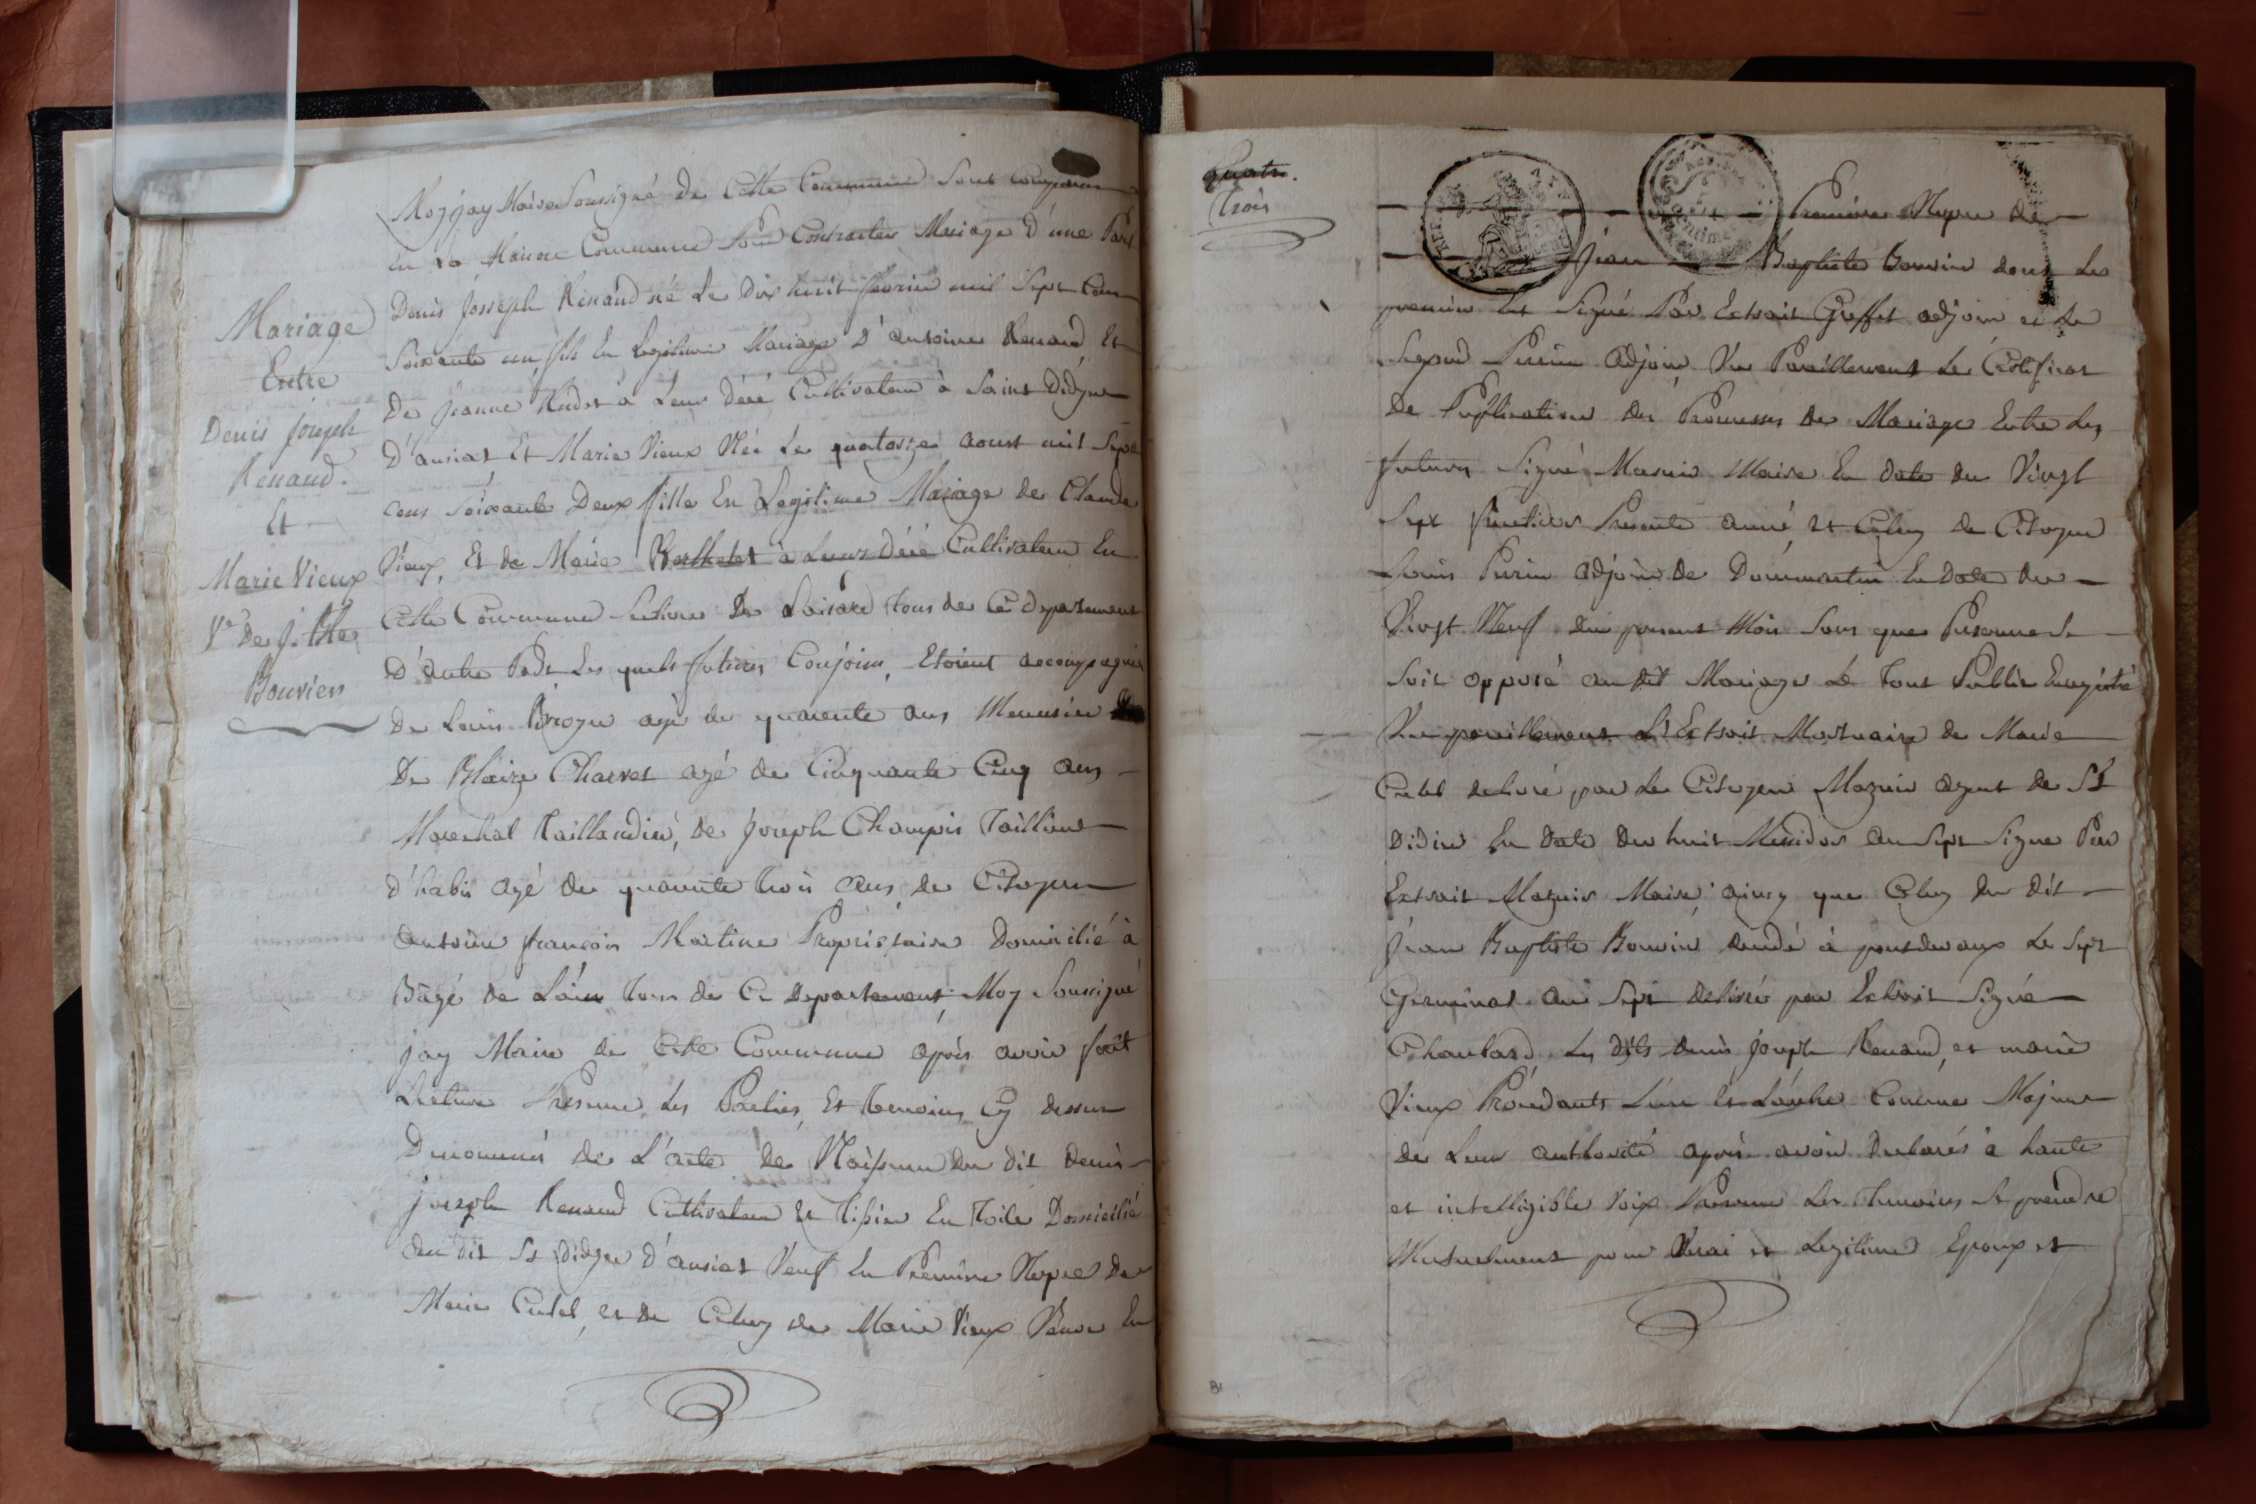 Mariage
Entre
Denis Joseph
Renaud.
Et
Marie Vieux
Ve de J. Bte
Bouvier
Moy jay Maire Soussigné de Cette Commune Sont comparus
En La Maison Commune Pour Contracter Mariage D'une Part
Denis Josseph Renaud né Le Dix huit fevrier mil Sept Cent
Soixante un fils En Legitime Mariage D'antoine Renaud Et
De Jeanne Rudet à Leur Déré Cultivateur à Saint Didyer
D'ausiat Et Marie Vieux Née Le quatorze aoust mil Sept
cens Soixante Deux fille En Legitime Mariage de Claude
Vieux, Et de Marie Berthelet à Leurs Déré Cultivateur En
Cette Commune Section De Loisard tous de Ce departement
D'autre Part Les quels futurs Conjoins, Etoient accompagnés
De Louis agé de quarente ans Menusier
De Blaize Charvet agé de Cinquante Cinq ans
Marechal Taillandier, de Joseph Champin Tailleur
d'habis agé de quarente trois ans, de Citoyen
antoine françois Martine Propriétaire Domicilié à
Bagé de Lain tous de Ce departement, Moy Soussigné
jay Maire de Cette Commune après avoir fait
Lecture Presence Les Parties, Et temoins Cy dessus
Denommés de L'acte de Naissence du dit denis
joseph Renaud Cultivateur Et Tissier En Toile Domicilié
au dit St Didyer d'ausiat Veuf En Premiere Nopces de
Marie Cutel, et de Celuy de Marie Vieux Veuve En
Quatre.
trois
Premiere Nopce de
Jean Baptiste Bouvier dont Les
premier Est Signé Par Extrait Greffet adjoin et Le
Segond Perin Adjoin Vu Pareillement Le Certificat
De Publication des Promesses de Mariage Entre Les
futurs Signé Mazuir Maire En date du Vingt
Sept fructidor Presente année, et Celuy de Citoyen
Louis Purin adjoin de Dommartin En Date du
Vingt Neuf du present Mois Sans que Personne Se
Soit opposé au dit Mariage Le Tout Publié Enregistré
Vu pareillement L'Extrait Mortuaire de Marie
Cutel delivré par Le Citoyen Mazuir agent de St
Didier En Date du huit Messidor an Sept Signe Par
Extrait Mazuir Maire, ainsy que Celuy du dit
Jean Baptiste Bouvier à pontdevaux Le Sept
Germinal an Sept delivré par Extrait Signé
Chambard, Les dits denis joseph Renaud, et marie
Vieux Procedants L'un Et L'autre Comme Majeure
de Leur authorité après avoir declarés à haute
et intelligible voix Presence Les Temoins Se prendre
Mutuelment pour Vrai et Legitime Epoux et